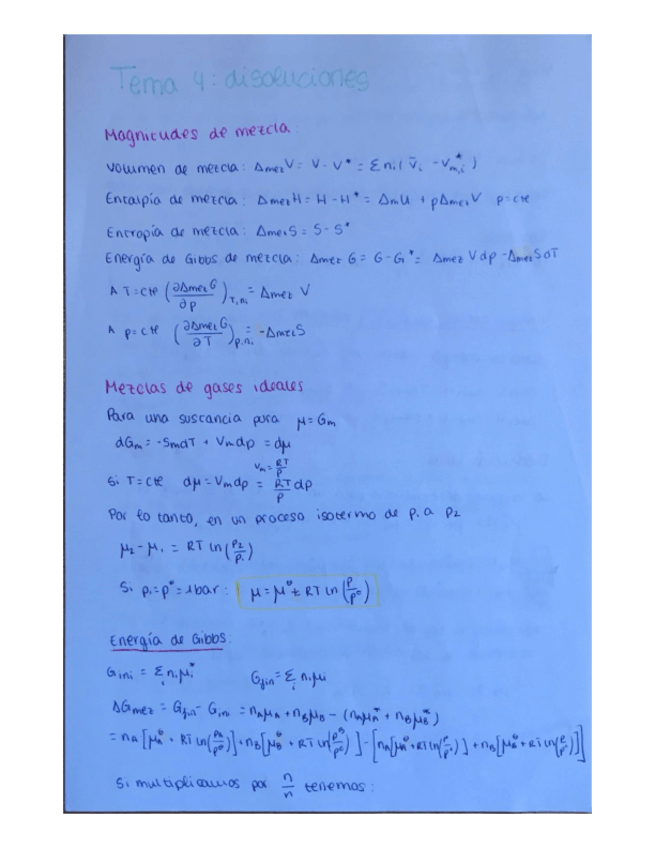 Tema 4: disoluciones
Magnitudes de mezcla:
Volumen de mezcla: ΔmezV = V - V* = Σni( V̄i - V*m,i )
Entalpía de mezcla: ΔmezH = H - H* = ΔmU + pΔmezV p=cte
Entropía de mezcla: ΔmezS = S - S*
Energía de Gibbs de mezcla: Δmez G = G - G* = Δmez V dp - ΔmezS dT
A T=cte (∂ΔmezG/∂p)T,ni = Δmez V
A p=cte (∂ΔmezG/∂T)p,ni = -ΔmezS
Mezclas de gases ideales
Para una sustancia pura μ=Gm
dGm = -SmdT + Vmdp = dμ
Vm = RT/p
Si T=cte dμ = Vmdp = RT/p dp
Por lo tanto, en un proceso isotermo de p1 a p2
μ2 - μ1 = RT ln(p2/p1)
Si p1=pº=1bar: μ = μº + RT ln(p/pº)
Energía de Gibbs:
Gini = Σi niμi* Gfin = Σi niμi
ΔGmez = Gfin - Gini = nAμA + nBμB - (nAμA* + nBμB*)
= nA[μAº + RT ln(pA/pº)] + nB[μBº + RT ln(pB/pº)] - [nA[μAº + RT ln(p/pº)] + nB[μBº + RT ln(p/pº)]]
Si multiplicamos por n/n tenemos: